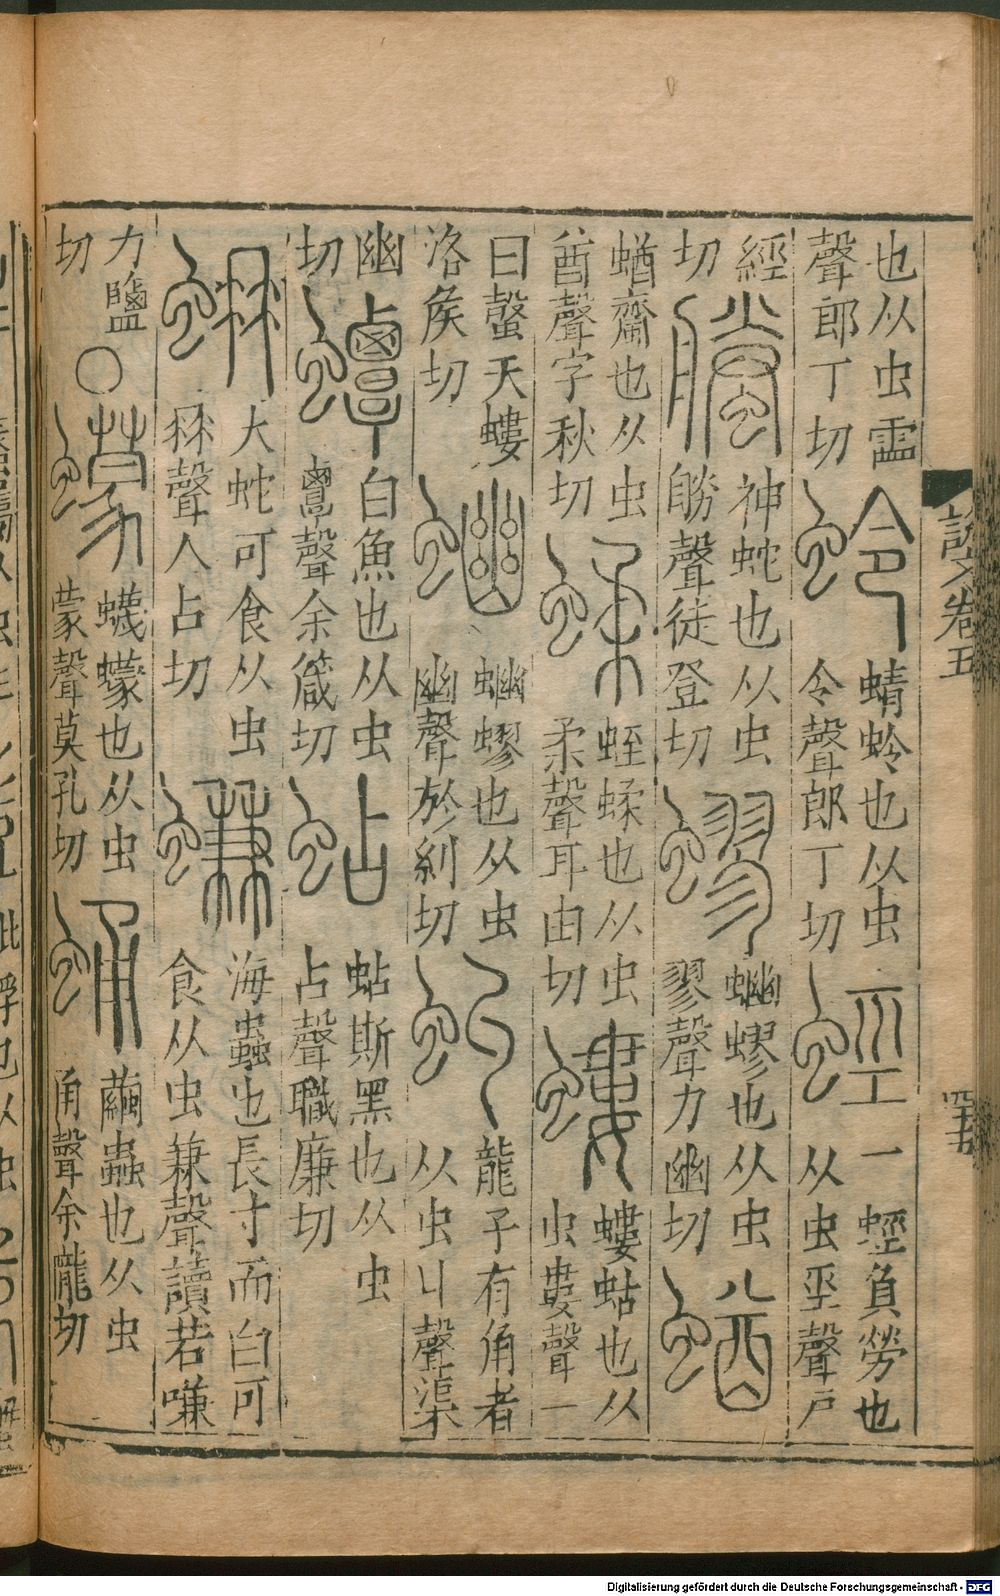 也从虫霝
聲郎丁切
蛉
蜻蛉也从虫
令聲郎丁切
蛵
一 蛵負勞也
从虫巠聲戶
經
切
螣
神蛇也从虫
朕聲徒登切
蟉
蟉也从虫
翏聲力幽切
蝤
蝤齏也从虫
酋聲字秋切
蝚
蛭蝚也从虫
柔聲耳由切
螻
螻蛄也从
虫婁聲一
曰螜天螻
洛侯切
蟉也从虫
幽聲於糾切
虯
龍子有角者
从虫丩聲渠
幽
切
蟫
白魚也从虫
覃聲余箴切
蛅
蛅斯黑也从虫
占聲職廉切
蚺
大蛇可食从虫
冄聲人占切
蠊
海蟲也長寸而白可
食从虫兼聲讀若嗛
力鹽
切
○
蠓
蠛蠓也从虫
蒙聲莫孔切
蛹
繭蟲也从虫
甬聲余隴切
說文卷五
Digitalisierung gefördert durch die Deutsche Forschungsgemeinschaft - DFG